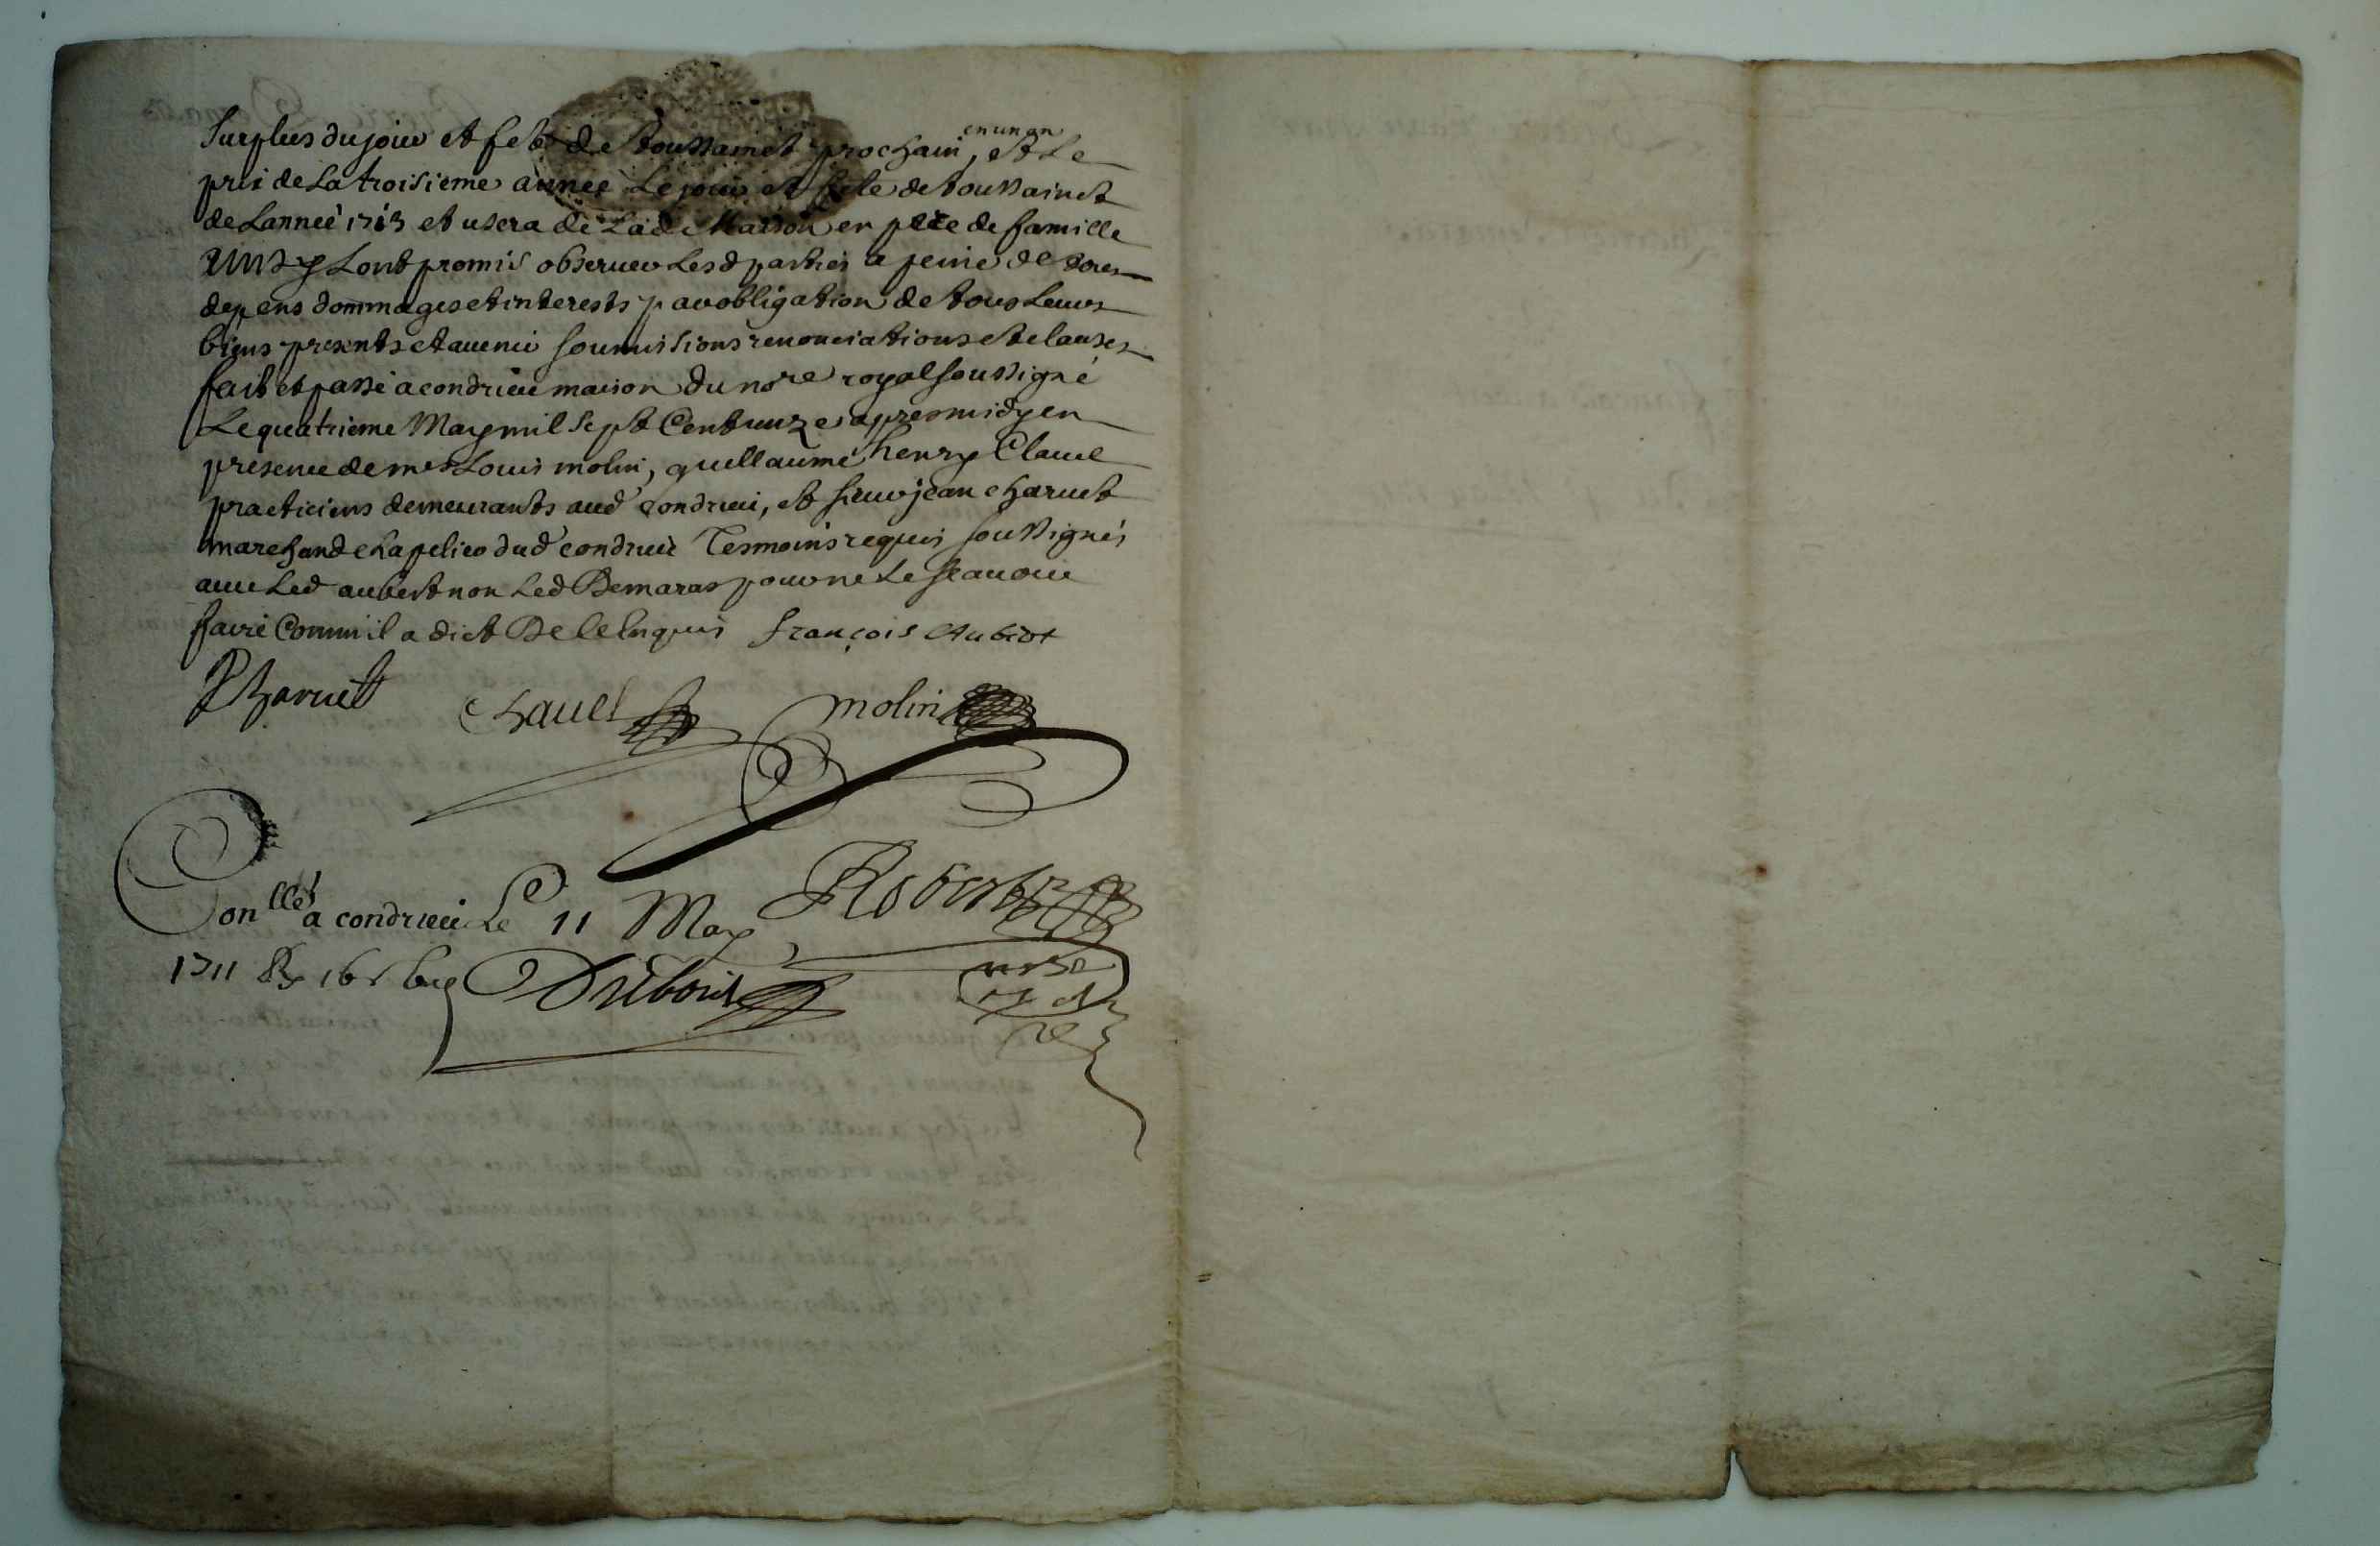 Surplus du jour et feste de toussainct prochain, en un an et le
prix de la troisieme année le jour et feste de toussainct
de Lanneé 1713 et usera de lad. Maison en pere de famille
Ainsy Lont promis obseruer Lesd parties a peine de tous
depens dommages et interests par obligation de tous Leurs
biens presents et auenir soumissions renonciations et clauses
fait et passé a condrieu maison du nore royal soussigné
Le quatrieme May mil sept Cent unze apres midy en
presence de mes Louis molin, guillaume henry Chauel
practiciens demeurants aud condrieu, et sieur jean charuet
marchand chapelier dud condrieu Tesmoins requis soussignés
auec Led aubert non Led Demaras pour ne le scauoir
faire Comm'il a dict De ce enquis françois Aubert
JCharuet Chauel molin
Conllé a condrieu Le 11 May Robert
1711 Dubois